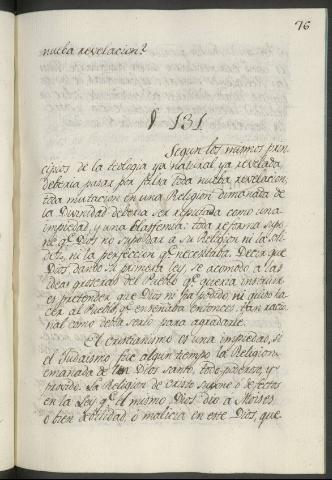 76
nueba revelacion?
§ 131
Segun los mismos prin-
cipios de la teologia ya natural ya revelada
deberia pasar por falsa toda nueba revelacion,
toda mutacion en una Religion dimanada de
la Divinidad deberia ser reputada como una
impiedad, y una blasfemia. toda reforma supo-
ne qe. Dios no supo dar a su Religion ni la soli-
dez, ni la perfeccion qe. necesitaba. Decir que
Dios, dando su primera ley, se acomodo a las
ideas groseras del Pueblo qe. queria instruir
es pretender que Dios ni ha podido, ni quiso ha-
cer al Pueblo qe. enseñaba entonces, tan racio-
nal como debia serlo para agradarle.
El cristianismo es una impiedad, si
el Judaismo fue algun tiempo la Religion
emanada de un Dios santo, todo-poderoso, y
provido. La Religion de Cristo supone o defectos
en la Ley qe. el mismo Dios dio a Moises
o bien debilidad, o malicia en este Dios, que